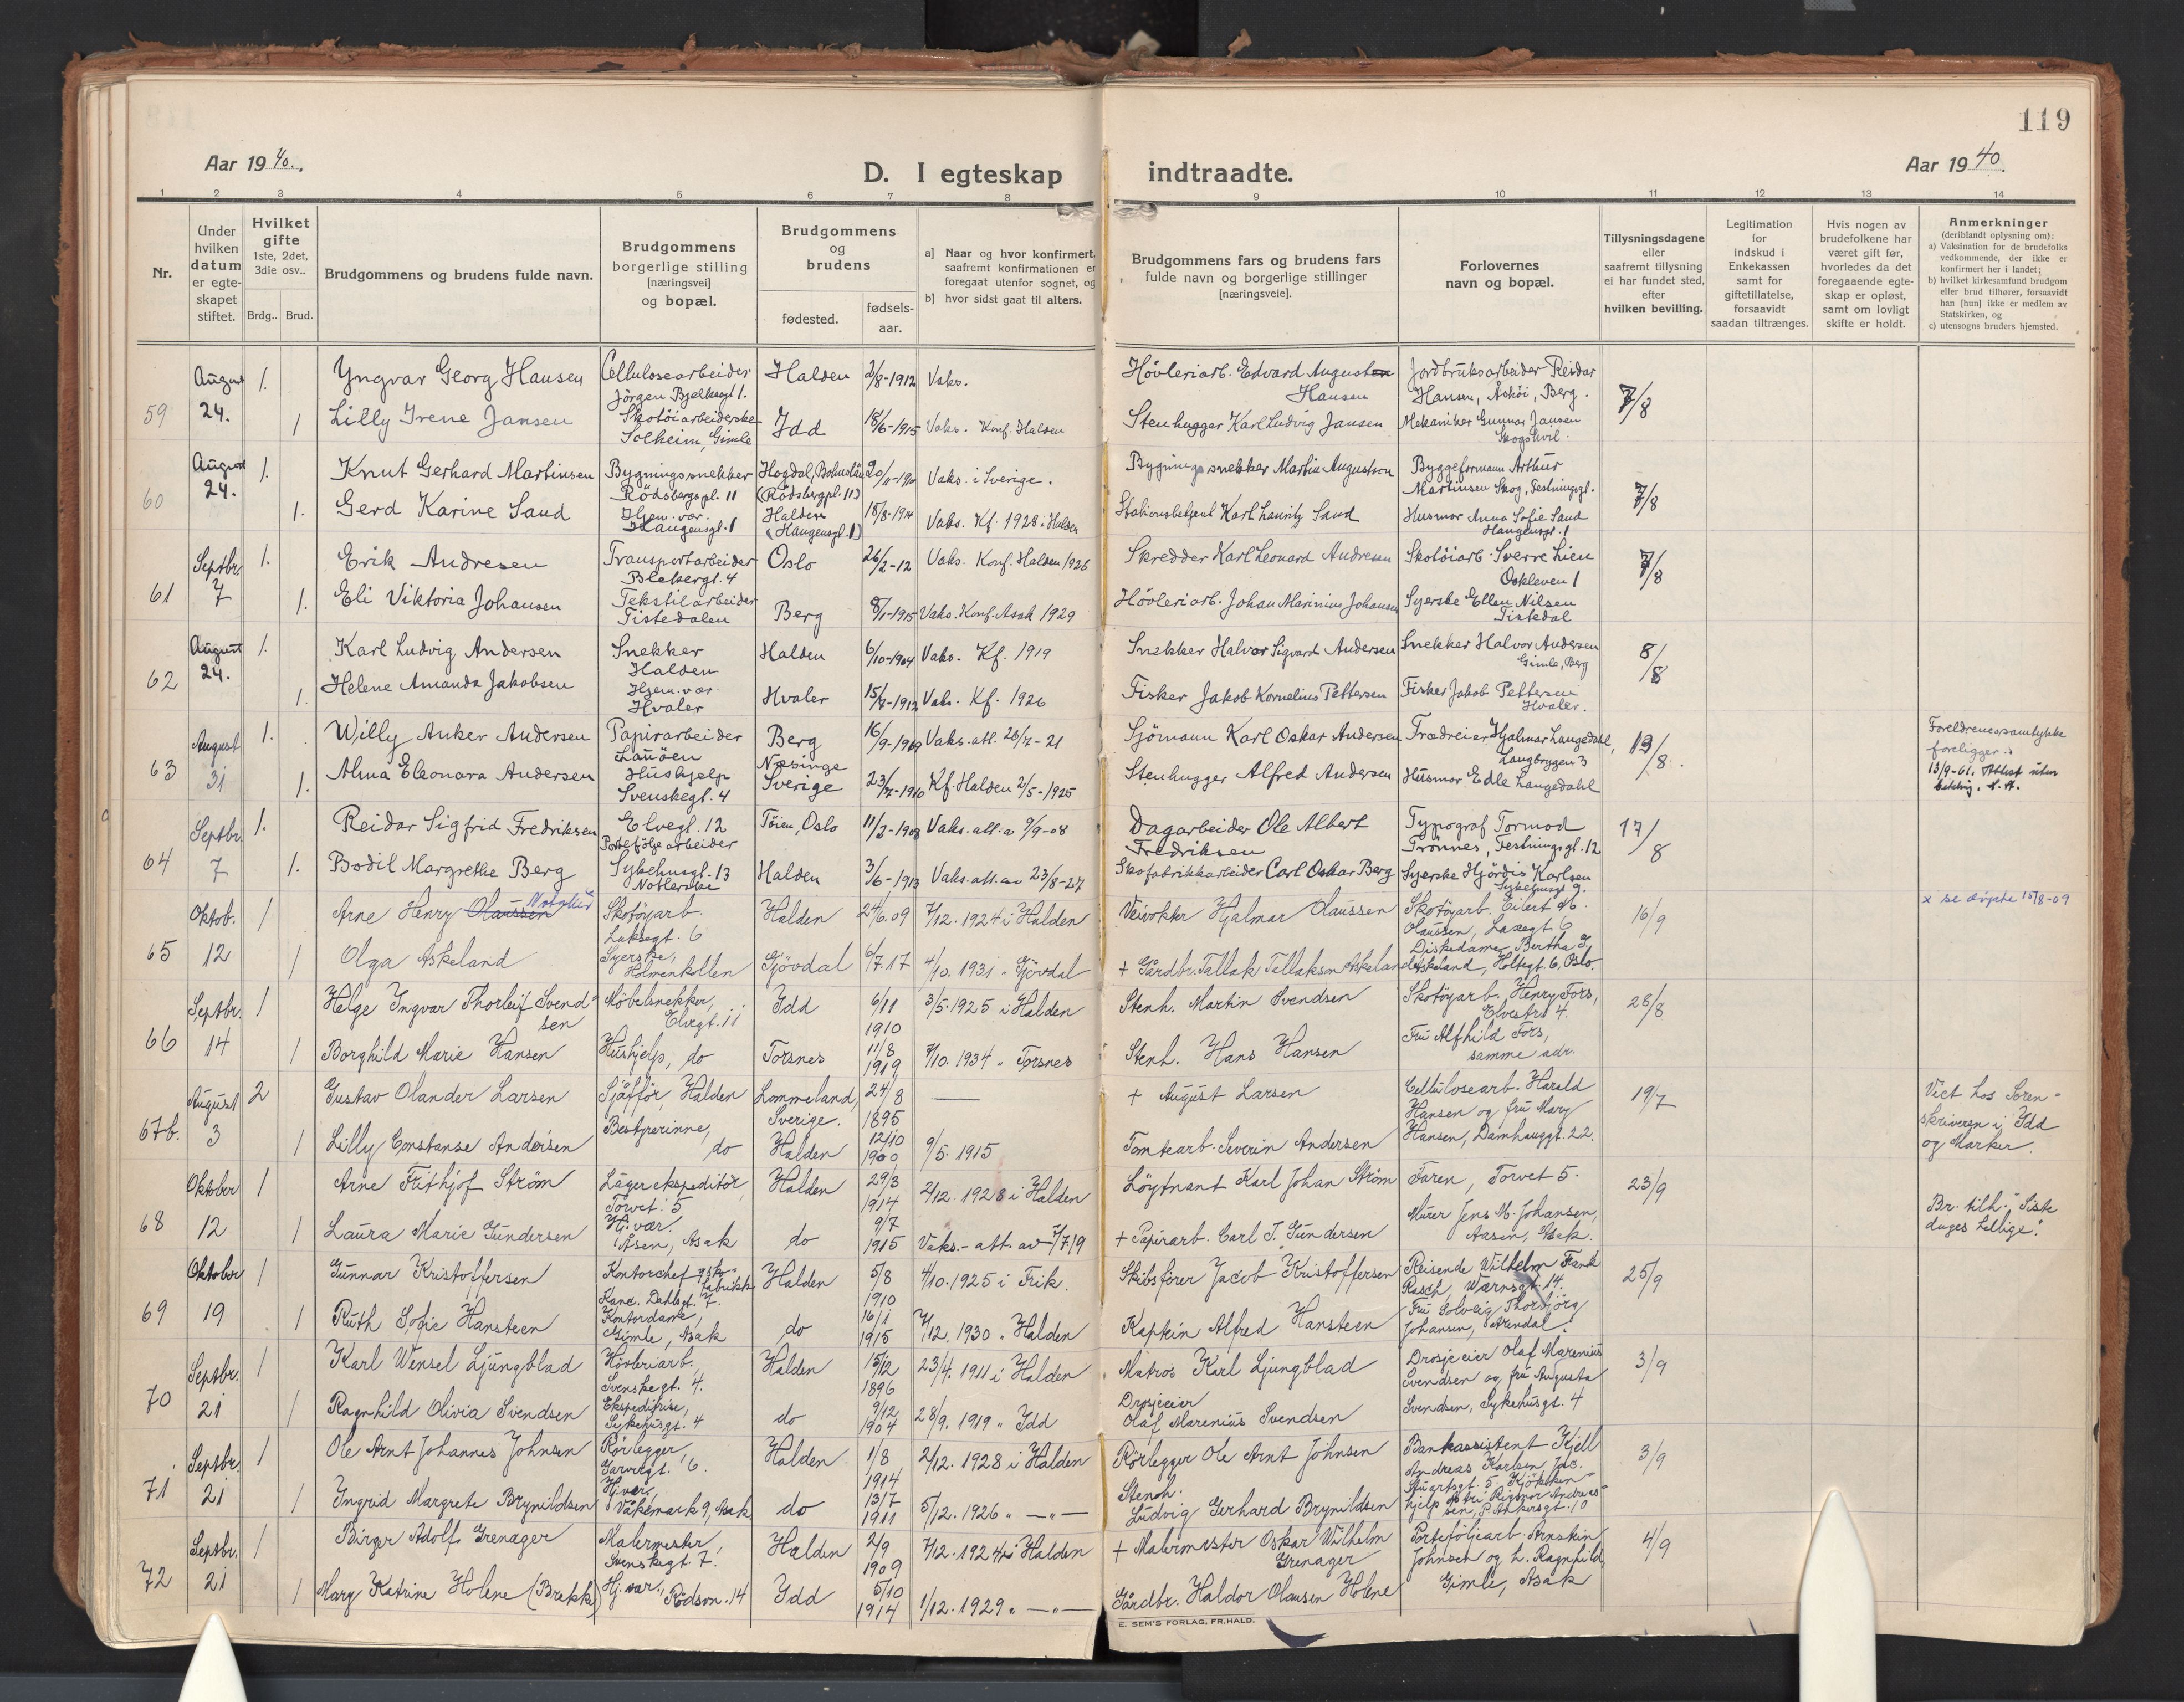 119
Aar 19 40.
D. I egteskap indtraadte.
Aar 19 40.
1 2 3 4 5 6 7 8 9 10 11 12 13 14
Nr.
Under hvilken datum er egte-skapet stiftet.
Hvilket gifte 1ste, 2det, 3die osv..
Brdg.. Brud.
Brudgommens og brudens fulde navn.
Brudgommens borgerlige stilling [næringsvei] og bopæl.
Brudgommens og brudens
fødested.
fødsels-aar.
a] Naar og hvor konfirmert, saafremt konfirmationen er foregaat utenfor sognet, og
b] hvor sidst gaat til alters.
Brudgommens fars og brudens fars fulde navn og borgerlige stillinger [næringsveie].
Forlovernes navn og bopæl.
Tillysningsdagene eller saafremt tillysning ei har fundet sted, efter hvilken bevilling.
Legitimation for indskud i Enkekassen samt for giftetillatelse, forsaavidt saadan tiltrænges.
Hvis nogen av brudefolkene har været gift før, hvorledes da det foregaaende egte-skap er opløst, samt om lovligt skifte er holdt.
Anmerkninger (deriblandt oplysning om):
a) Vaksination for de brudefolks vedkommende, der ikke er konfirmert her i landet;
b) hvilket kirkesamfund brudgom eller brud tilhører, forsaavidt han [hun] ikke er medlem av Statskirken, og
c) utensogns bruders hjemsted.
59 August 24. 1. Yngvar Georg Hansen Cellulosearbeider Jörgen Bjelkesgt 1. Halden 2/8-1912 Vaks. Hövleriarb. Edvard August Hansen Jordbruksarbeider Reidar Hansen, Berg. 7/8
1 Lilly Irene Jansen Skotöiarbeiderske Solheim, Gimle Idd 18/6-1915 Vaks. Konf. Halden Stenhugger Karl Ludvig Jansen Mekaniker Gunnar Jansen Skogshvil.
60 August 24. 1. Knut Gerhard Martinsen Bygningssnekker Rödsbergspl. 11 Hogdal, Bohuslän (Rödsbergpl. 11) Vaks. i Sverige. Bygningssnekker Martin Augustson Byggeformann Arthur Martinsen Skog, Festningsgt. 7/8
1. Gerd Karine Sand Hjem. vær. Haugensgt. 1 Halden (Haugensgt. 1) 18/8-1914 Vaks. Kf. 1928 i Halden Stationsbetjent Karl Lauritz Sand Husmor Anna Sofie Sand Haugensgt. 1
61 Septbr. 7 1. Erik Andresen Transportarbeider Blekergt. 4 Oslo 26/2-12 Vaks. Konf. Halden 1926 Skredder Karl Leonard Andresen Skotöiarb. Sverre Lien Oskleven 1 7/8
1. Eli Viktoria Johansen Tekstilarbeider Tistedalen Berg 8/1-1915 Vaks. Konf. Asak 1929 Hövleriarb. Johan Marinius Johansen Syerske Ellen Nilsen Tistedal
62 August 24. 1. Karl Ludvig Andersen Snekker Halden Halden 6/10-1904 Vaks. Kf. 1919 Snekker Halvor Sigvard Andersen Snekker Halvor Andersen Gimle, Berg 8/8
1. Helene Amanda Jakobsen Hjem. vær. Hvaler Hvaler 15/7-1912 Vaks. Kf. 1926 Fisker Jakob Kornelius Pettersen Fisker Jakob Pettersen Hvaler.
63 August 31 1. Willy Anker Andersen Papirarbeider Berg 16/9-1909 Vaks. att. 26/7-21 Sjömann Karl Oskar Andersen Trædreier Hjalmar Langedahl, Langbryggen 3 13/8. Foreldrenes samtykke foreligger. 13/9-61. Attest uten
1. Alma Eleonora Andersen Hushjelp Svenskegt. 4 Næsinge Sverige 23/7-1910 Kf. Halden 2/5-1925 Stenhugger Alfred Andersen Husmor Edle Langedahl
64 Septbr. 7 1. Reidar Sigfrid Fredriksen Elvegt. 12 Porteföljearbeider Töien, Oslo 11/3-1908 Vaks. att. av 9/9-08 Dagarbeider Ole Albert Fredriksen Typograf Tormod Trönnes, Festningsgt. 12 17/8
1. Bodil Margrethe Berg Sykehusgt. 13 Notlerske Halden 3/6-1913 Vaks. att. av 23/8-27 Skofabrikkarbeider Carl Oskar Berg Syerske Hjördis Karlsen Sykehusgt 9.
65 Oktob. 12 1 Arne Henry Olaussen Skotöyarb. Laksegt. 6 Halden 24/6.09 7/12. 1924 i Halden Veivokter Hjalmar Olaussen Skotöyarb. Eilert M. Olaussen, Laxegt 6 16/9 x se döpte 15/8-09
1 Olga Askeland Syerske, Holmenkollen Gjövdal 6/7.17 4/10. 1931 " Gjövdal + Gårdbr. Tallak Tellaksen Askeland Diskedame Bertha T. Askeland, Holtegt. 6, Oslo.
66 Septbr. 14 1 Helge Ingvar Thorleif Svendsen Möbelsnekker, Elvegt. 11 Idd 6/11 1910 3/5. 1925 i Halden Stenh. Martin Svendsen Skotöyarb. Henry Fors, Elvestr. 4. 28/8
1 Borghild Marie Hansen Hushjelp, do Torsnes 11/8 1919 7/10. 1934 " Torsnes Stenh. Hans Hansen Fru Alfhild Fors, samme adr.
67b. August 3 2 Gustav Olander Larsen Sjåfför, Halden Lommeland, Sverige. 24/8 1895 — + August Larsen Cellulosearb. Harald Hansen og fru Mary Hansen, Damhauggt. 22. 19/7 Viet hos Soren-skriveren i Idd og Marker.
1 Lilly Constanse Andersen Bestyrerinne, do Halden 12/10 1900 9/5. 1915 Tomtearb. Severin Andersen
68 Oktober 12 1 Arne Frithjof Ström Lagerekspeditör, Torvet 5 Halden 29/3 1914 2/12. 1928 i Halden Löytnant Karl Johan Ström Faren, Torvet 5. 23/9
1 Laura Marie Gundersen Hj. vær. Åsen, Asak do 9/7 1915 Vaks.-att. av 7/7 19 + Papirarb. Carl J. Gundersen Murer Jens M. Johansen, Aasen, Asak. Br. tilh. "Siste dages hellige".
69 Oktober 19 1 Gunnar Kristoffersen Kontorchef skofabrikk Kanc. Dahlsgt. 7. Halden 5/8 1910 4/10. 1925 i Frik. Skibsförer Jacob Kristoffersen Reisende Wilhelm Frank Rasch, Wærnsgt. 14. 25/9
1 Ruth Sofie Hansteen Kontordame, Gimle, Asak do 16/1 1915 7/12. 1930 " Halden Kaptein Alfred Hansteen Fru Solveig Thorbjörg Johansen, Arendal.
70 Septbr. 21 1 Karl Wensel Ljungblad Hövleriarb., Svenskegt. 4. Halden 15/12 1896 23/4. 1911 i Halden Matros Karl Ljungblad Drosjeeier Olaf Marenius Svendsen og fru Augusta Svendsen, Sykehusgt. 4 3/9
1 Ragnhild Olivia Svendsen Ekspeditrise, Sykehusgt. 4 do 9/12 1904 28/9. 1919 " Idd Drosjeeier Olaf Marenius Svendsen
71 Septbr. 21 1 Ole Arnt Johannes Johnsen Rörlegger Garvergt. 6. Halden 1/8 1914 2/12. 1928 i Halden Rörlegger Ole Arnt Johnsen Bankassistent Kjell Andreas Karlsen 3/9
1 Ingrid Margrete Brynildsen Hj. vær., Våkemark 9, Asak do 13/7 1911 5/12. 1926 " —"— Stenh. Ludvig Gerhard Brynildsen Stuartsgt. 5. Kjökkenhjelp Rigmor Andreassen, P. Ankersgt. 10
72 Septbr. 21 1 Birger Adolf Grenager Malermester, Svenskegt. 7. Halden 2/9 1909 7/12. 1924 i Halden + Malermester Oskar Wilhelm Grenager Porteföljearb. Arnstein Johnsen og h. Ragnhild, Gimle, Asak 4/9
1 Mary Katrine Holene (Brekke) Hj. vær., Rödsvn. 14 Idd 5/10 1914 1/12. 1929 " —"— Gårdbr. Haldor Olausen Holene
E. SEM'S FORLAG, FR.HALD.